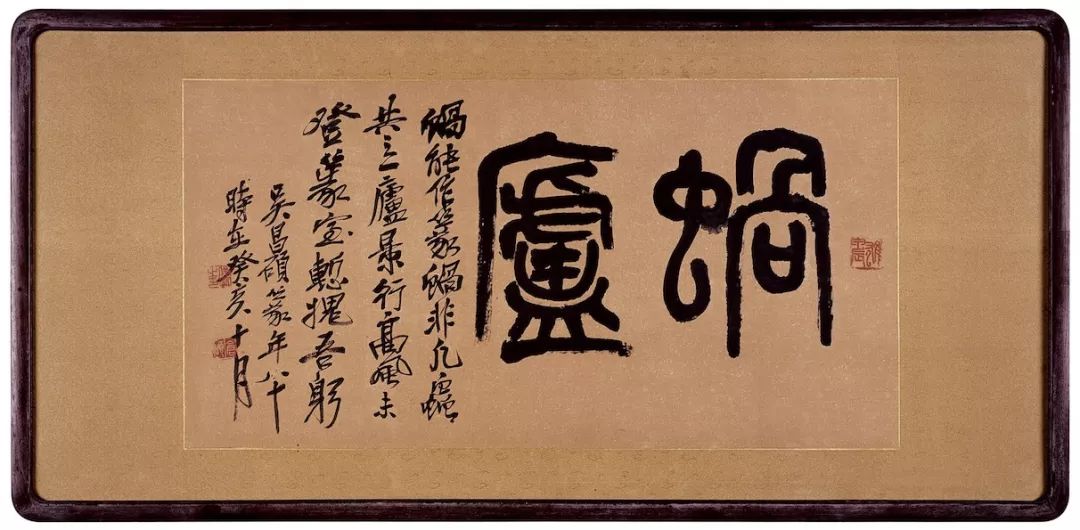 蝸廬
蝸能作篆蝸非凡
共之廬景行高風未
登篆室慙愧吾躬
吳昌碩篆年八十
時在癸亥十月